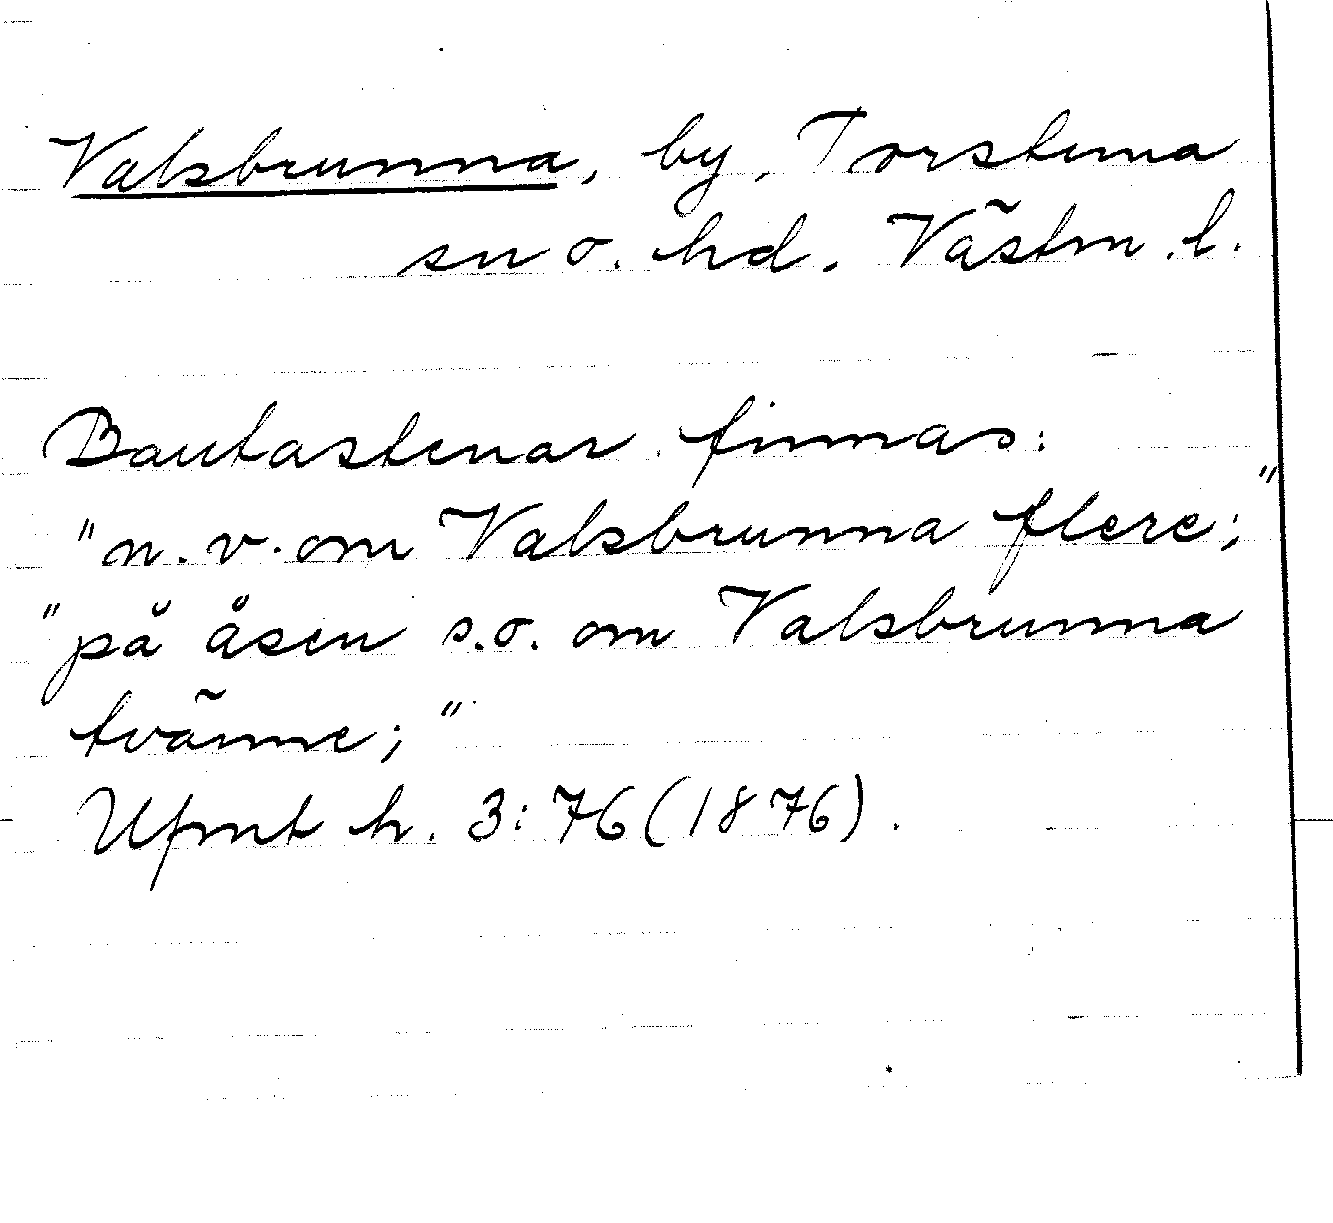 Valsbrunna, by, Torstuna
sn o. hd, Västm. l.
Bautastenar finnas:
"n.v. om Valsbrunna flere;"
"på åsen s.o. om Valsbrunna
tvänne;"
Upmt h. 3:76 (1876).